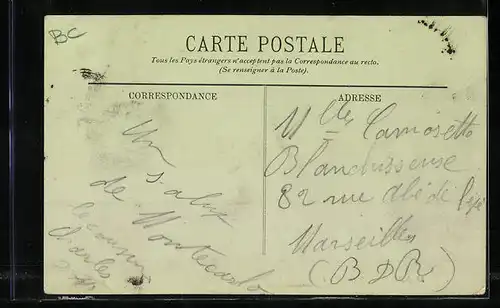 BC
CARTE POSTALE
Tous les Pays étrangers n'acceptent pas la Correspondance au recto.
(Se renseigner à la Poste).
CORRESPONDANCE
ADRESSE
Un salut
de Montecarlo
le cousin
Charles
Mlles Camosetto
Blanchisseuse
82 rue
Marseilles
(B D R)